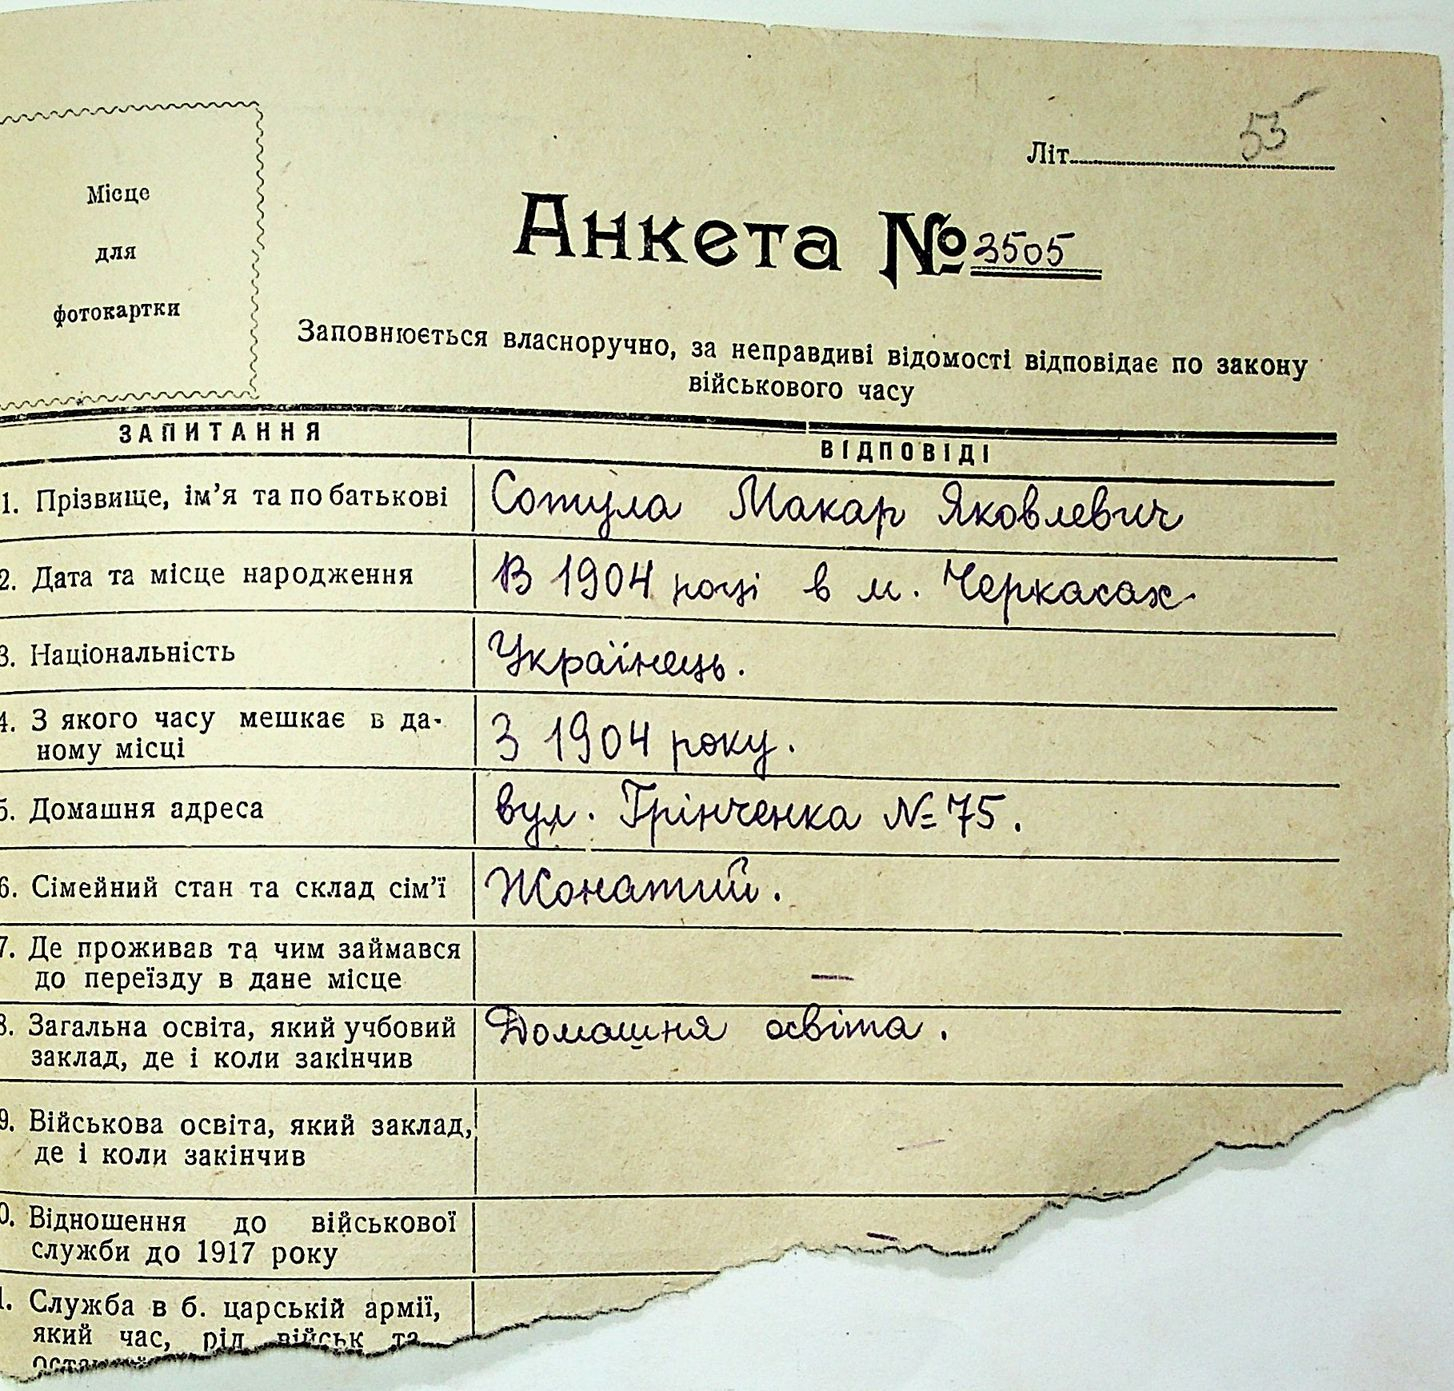 Місце
для
фотокартки
Літ. 53
Анкета № 3505
Заповнюється власноручно, за неправдиві відомості відповідає по закону
військового часу
ЗАПИТАННЯ ВІДПОВІДІ
1. Прізвище, ім'я та по батькові Сотула Макар Яковлевич
2. Дата та місце народження В 1904 році в м. Черкасах.
3. Національність Українець.
4. З якого часу мешкає в да-
ному місці З 1904 року.
5. Домашня адреса вул. Грінченка №=75.
6. Сімейний стан та склад сім'ї Жонатий.
7. Де проживав та чим займався
до переїзду в дане місце —
8. Загальна освіта, який учбовий Домашня освіта.
заклад, де і коли закінчив
9. Військова освіта, який заклад,
де і коли закінчив —
0. Відношення до військової
служби до 1917 року —
1. Служба в б. царській армії,
який час, рід військ та